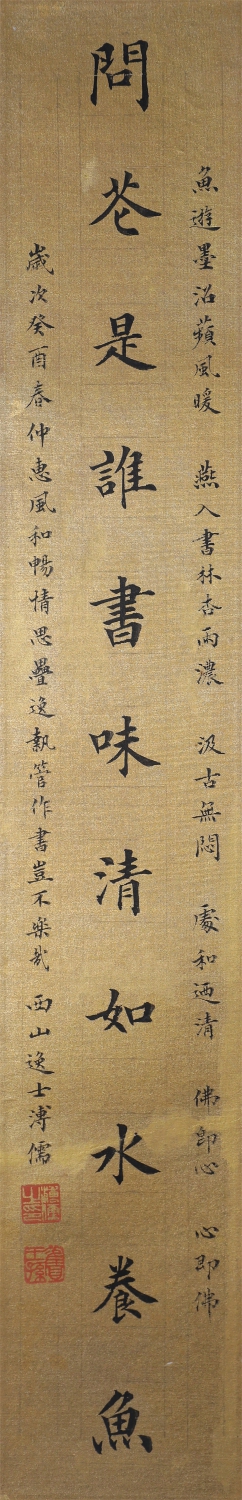 魚遊墨沼蘋風暖 燕入書林杏雨濃 汲古無悶 處和迺清 佛即心 心即佛
問花是誰書味清如水養魚
歲次癸酉春仲惠風和暢情思疊逸執管作書豈不樂哉 西山逸士溥儒